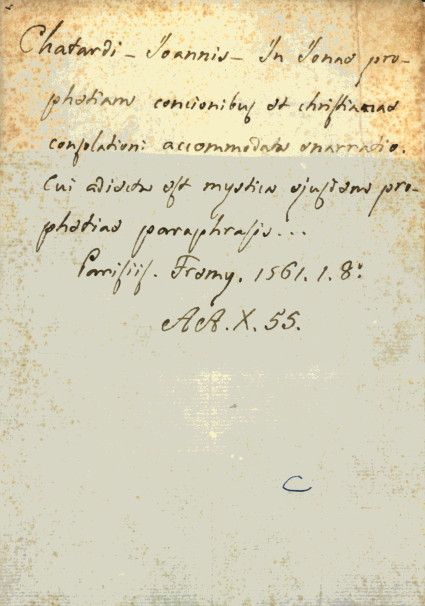 Chatardi - Joannis - In Jonae pro-
phetiam concionibus et christianae
consolationi accommodata enarratio.
Cui adiecta est mystica ejusdem pro-
phetiae paraphrasis...
Parisiis. Fremy. 1561. 1. 8º
AA. X. 55.
C